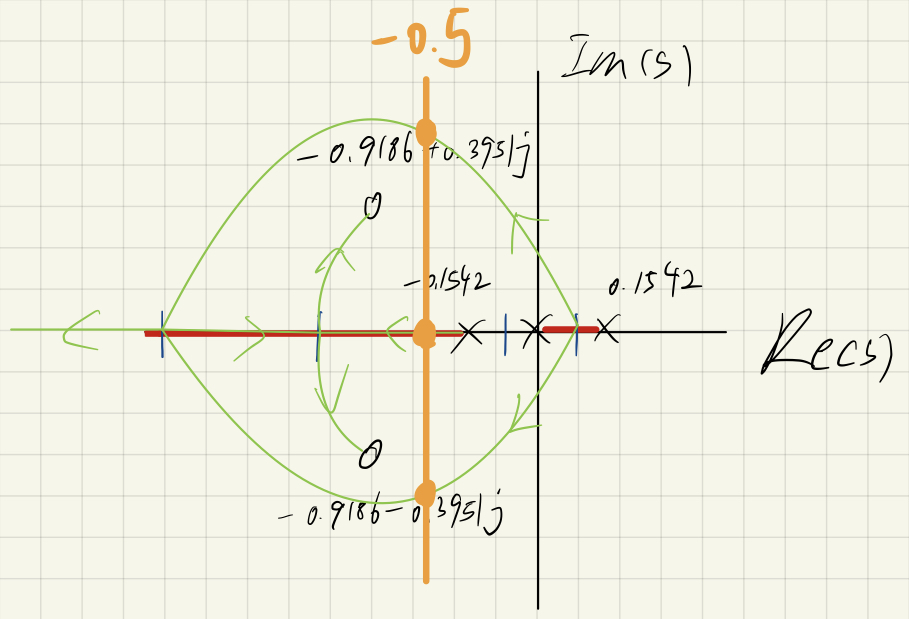 -0.5
Im(s)
-0.9186+0.3951j
-0.1542
0.1542
Re(s)
-0.9186-0.3951j